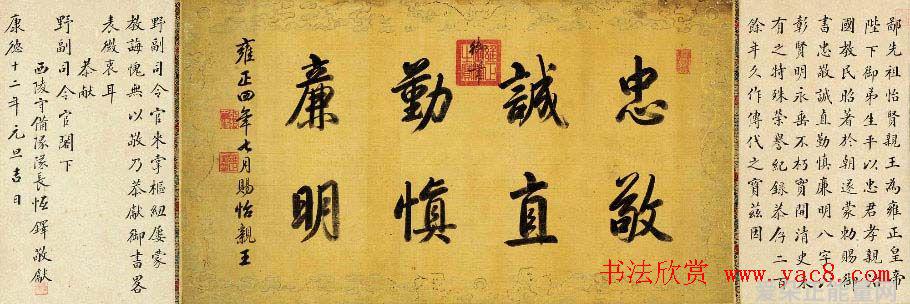 鄙先祖怡賢親王為雍正皇帝
陛下御弟生平以忠君孝親治
國教民昭著於朝遂蒙勅賜御
書忠敬誠直勤慎廉明八字以
彰賢明永垂不朽實開清史未
有之特殊榮譽紀錄恭存二百
餘年久作傳代之寶茲因
忠敬
誠直
勤慎
廉明
雍正四年七月賜怡親王
野副司令官來掌樞紐屡蒙
教誨愧無以敬乃恭獻御書畧
表微衷耳
恭獻
野副司令官閣下
西陵守備隊隊長恆鐸敬獻
康德十二年元旦吉日
书法欣赏
www.yac8.com